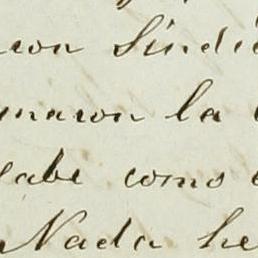 ron Sindi
maron la
sabe como
Nada he